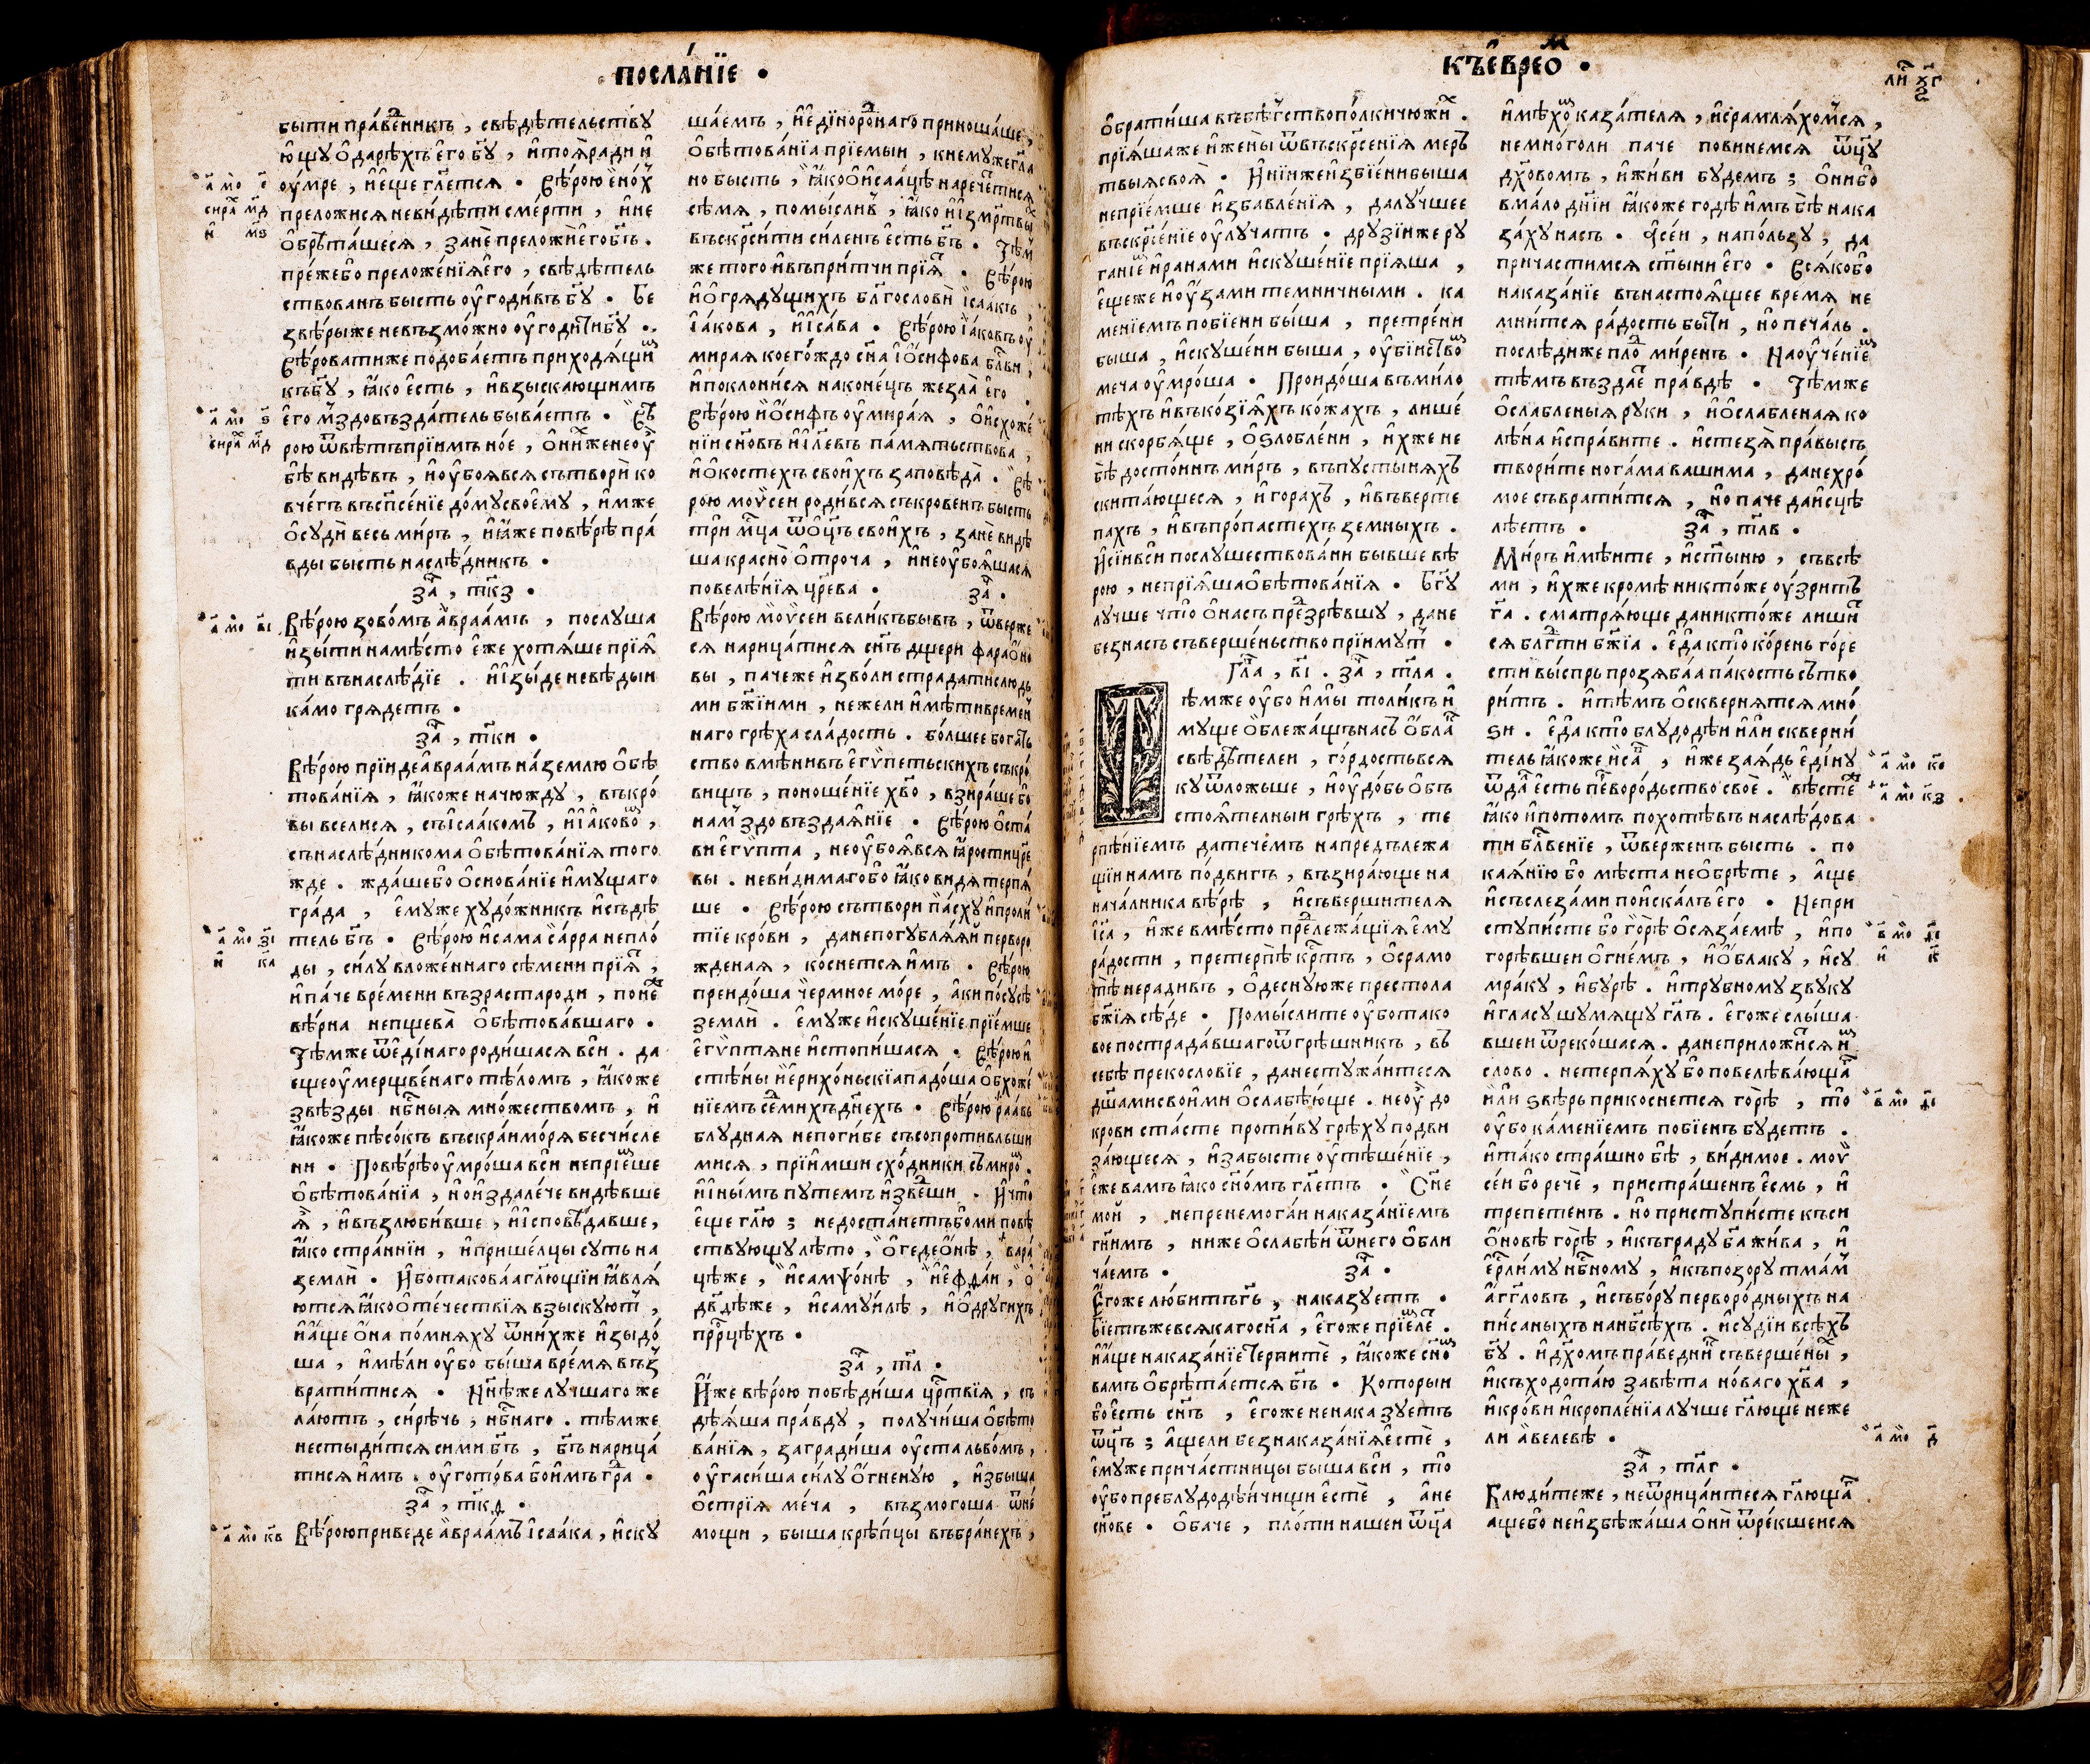 посла́нїе .
бы́ти пра́ведникъ , свѣдѣ́тельствꙋ
ю́щꙋ ѻ҆ дарѣ́хъ є҆го̀ бг҃ꙋ , и҆ тоя̀ ради и҆
ᲂу҆́мре , и҆ є҆ще гл҃ется . Вѣ́рою є҆но́х
преложи́ся неви́дѣти сме́рти , и҆ не
ѻ҆брѣта́шеся , занѐ преложѝ є҆го̀ бг҃ъ .
пре́жебо преложе́нїя є҆го̀ , свѣдѣ́тель
ствованъ бы́сть ᲂу҆годи́въ бг҃ꙋ . Бе
звѣ́рыже невъзмо́жно ᲂу҆годи́ти бг҃ꙋ .
Вѣ́роватиже подоба́етъ приходя́щим
къ бг҃ꙋ , ꙗ҆́ко є҆́сть , и҆ взыска́ющимъ
є҆го̀ мздовъзда́тель быва́етъ . Вѣ
рою ѿвѣ́тъ прїи́мъ но́е , ѻ҆ ни́хже не ᲂу҆
бѣ̀ ви́дѣвъ , и҆ ᲂу҆боя́вся сътворѝ ко
вче́гъ въ сп҃се́нїе до́мꙋ своемꙋ̀ , и҆́мже
ѻ҆сꙋдѝ ве́сь ми́ръ , и҆ ꙗ҆́же по вѣ́рѣ пра́
вды бы́сть наслѣ́дникъ .
за҃ , ткз .
Вѣ́рою зово́мъ а҆враа́мъ , послꙋ́ша
и҆зы́ти на мѣ́сто є҆́же хотя́ше прїя́
ти въ наслѣ́дїе . и҆ и҆зы́де не вѣ́дыи
ка́мо гряде́тъ .
за҃ , тки .
Вѣ́рою прїи́де а҆враа́мъ на́ землю ѻ҆бѣ
това́нїя , ꙗ҆́коже на чю́ждꙋ , въ кро́
вы всели́ся , съ і҆саа́комъ , и҆ і҆а́ковом ,
съ наслѣ́дникома ѻ҆бѣтова́нїя того
жде . жда́шебо ѻ҆снова́нїе и҆мꙋ́щаго
гра́да , є҆мꙋ́же хꙋдо́жникъ и҆ съдѣ́
тель бг҃ъ . Вѣ́рою и҆ сама̀ са́рра непло́
ды , си́лꙋ вложе́ннаго сѣ́мени прїя́т ,
и҆ па́че вре́мени въ́зраста родѝ , поне́же
вѣ́рна непщева̀ ѻ҆бѣтова́вшаго .
Тѣ́мже ѿ є҆ди́наго роди́шася всѝ . да
еще ᲂу҆мерщве́наго тѣ́ломъ , ꙗ҆́коже
ѕвѣ́зды нб҃ныя мно́жествомъ , и҆
ꙗ҆́коже пѣсо́къ въскра́и мо́ря бесчи́сле
ни . По вѣ́рѣ ᲂу҆мро́ша всѝ не прїе́мше
ѻ҆бѣтова́нїа , но̀ и҆здале́че ви́дѣвше
я҆̀ , и҆ възлюби́вше , и҆ и҆сповѣ́давше ,
ꙗ҆́ко стра́ннїи , и҆ прише́лцы сꙋ́ть на
землѝ . И҆́бо такова́а гл҃ющїи ꙗ҆вля́
ются ꙗ҆́ко ѻ҆те́чествїя взыскꙋ́ют ,
и҆ а҆́ще ѻ҆́на по́мняхꙋ ѿ ни́хже и҆зыдо́
ша , и҆мѣ́ли ᲂу҆́бо бы́ша вре́мя въз
врати́тися . Нн҃ѣже лꙋ́чшаго же
ла́ютъ , си́рѣчь , нб҃наго . тѣ́мже
не стыди́тся си́ми бг҃ъ , бг҃ъ нарица́
тися и҆́мъ . ᲂу҆гото́ва бо и҆́мъ гра́д .
за҃ , ткѳ .
Вѣ́рою приведѐ а҆враа́мъ і҆саа́ка , и҆скꙋ
шаемъ , и҆ є҆диноро́днаго приноша́ше ,
ѻ҆бѣтова́нїа прїе́мыи , к немꙋ́же гл҃а
но бы́сть , ꙗ҆́ко ѻ҆ и҆саа́цѣ нарече́тися
сѣ́мя , помы́слив , ꙗ҆́ко и҆ и҆з ме́ртвых
въскр҃си́ти си́ленъ є҆́сть бг҃ъ . Тѣ́м
же того̀ и҆ въ при́тчи прїя́т . Вѣ́рою
и҆ ѻ҆ грядꙋ́щихъ блг҃ословѝ і҆саа́къ ,
і҆а́кова , и҆ и҆са́ва . Вѣ́рою і҆а́ковъ ᲂу҆
мирая коего́ждо сн҃а і҆ѻ́сифова блг҃ви ,
и҆ поклони́ся на коне́цъ жезла̀ є҆го̀ .
Вѣ́рою и҆ѻ́сифъ ᲂу҆мира́я , ѻ҆ и҆схоже́
нїи сн҃о́въ и҆и҃левъ па́мятьствова ,
и҆ ѻ҆ косте́хъ свои́хъ заповѣ́да . Вѣ́
рою мѡѷсе́и роди́вся съкрове́нъ бы́сть
трѝ мц҃а ѿ ѻ҆ц҃ъ свои́хъ , занѐ ви́дѣ
ша красно̀ ѻ҆троча̀ , и҆ не ᲂу҆боя́шася
повелѣ́нїя цр҃ева . за҃ .
Вѣ́рою мѡѷсе́и вели́къ бы́въ , ѿве́рже
ся нарица́тися сн҃ъ дще́ри фараѻ́но
вы , па́чеже и҆зво́ли страда́ти с людь
ми бж҃їими , не́жели и҆мѣ́ти вре́мен
наго грѣха̀ сла́дость . бо́лшее бога́ть
ство вмѣни́въ є҆гѵ́петьскихъ съкро́
вищъ , поноше́нїе хв҃о , взира́ше бо
на мздовъздая́нїе . Вѣ́рою ѻ҆ста́
ви є҆гѵ́пта , не ᲂу҆боя́вся ꙗ҆́рости цр҃е
вы . неви́димаго бо ꙗ҆́ко ви́дя терпя́
ше . Вѣ́рою сътворѝ па́схꙋ и҆ проли́
тїе кро́ви , да не погꙋбля́яй перворо
жде́ная , ко́снется и҆́мъ . Вѣ́рою
преидо́ша чермно́е мо́ре , а҆́ки по сꙋ́сѣ
землѝ . є҆мꙋ́же и҆скꙋше́нїе прїе́мше
є҆гѵ́птяне и҆стопи́шася . Вѣ́рою и҆
стѣ́ны и҆єрихо́ньскїа падо́ша ѻ҆бхоже́
нїемъ седми́хъ дн҃ехъ . Вѣ́рою раа́вь
блꙋдная не поги́бе съ сопроти́вльши
мися , прїи́мши схо́дники съ ми́ром .
и҆ и҆ны́мъ пꙋте́мъ и҆зве́дши . И҆ что̀
є҆ще гл҃ю ; недоста́нетъ бо ми повѣ́
ствꙋющꙋ лѣ́то , ѻ҆ гедеѻ́нѣ , вара́
цѣже , и҆ самѱо́нѣ , и҆ є҆фда́и , ѻ҆
дв҃дѣже , и҆ самꙋи́лѣ , и҆ ѻ҆ дрꙋги́хъ
прⷪ҇рцѣхъ .
за҃ , тл .
И҆́же вѣ́рою побѣди́ша црⷭ҇твїя , съ
дѣ́яша пра́вдꙋ , полꙋчи́ша ѻ҆бѣто
ва́нїя , загради́ша ᲂу҆ста̀ льво́мъ ,
ᲂу҆гаси́ша си́лꙋ ѻ҆́гненꙋю , и҆збы́ша
ѻ҆стрїя̀ ме́ча , възмого́ша ѿ не́
мощи , бы́ша крѣ́пцы въ бра́нехъ ,
а҃ мо е
сира мд
и мѕ
а҃ мо ѕ
сира мд
а҃ мо ві
а҃ мо зі
и ка
а҃ мо кв
къ є҆врео́м .
ли ꙋг
ѻ҆брати́ша въ бѣ́гство полкѝ чюжи́х .
прїя́шаже и҆ жены̀ ѿ въскрⷭ҇е́нїя ме́р
твыя своя̀ . И҆ ні́иже и҆збїе́ни бы́ша
не прїе́мше и҆збавле́нїя , да лꙋ́чшее
въскрⷭ҇е́нїе ᲂу҆лꙋча́тъ . дрꙋзі́иже рꙋ
га́нїем и҆ ра́нами и҆скꙋше́нїе прїя́ша ,
є҆щеже и҆ ᲂу҆́зами темни́чными . ка
ме́нїемъ побїе́ни бы́ша , претре́ни
бы́ша , и҆скꙋше́ни бы́ша , ᲂу҆бі́иством
меча̀ ᲂу҆мро́ша . Проидо́ша въ ми́ло
тѣхъ и҆ въ ко́зїяхъ ко́жахъ , лише́
ни скорбя́ще , ѻ҆ѕло́блени , и҆́хже не
бѣ̀ досто́инъ ми́ръ , въ пꙋсты́няхъ
скита́ющеся , и҆ гора́хъ , и҆ въ верте
пахъ , и҆ въ про́пастехъ земны́хъ .
И҆ сі́и всѝ послꙋ́шествова́ни бы́вше вѣ́
рою , не прїя́ша ѻ҆бѣтова́нїя . Бг҃ꙋ
лꙋ́чше что̀ ѻ҆ на́съ предзрѣ́вшꙋ , да не
без на́съ съверше́ньство прїи́мꙋт .
Гла҃ , ві . за҃ , тла .
Тѣ́мже ᲂу҆́бо и҆ мы̀ толи́къ и҆
мꙋ́ще ѻ҆блежа́щь на́съ ѻ҆́блак
свѣдѣ́телеи , го́рдость вся
кꙋ ѿло́жьше , и҆ ᲂу҆до́бь ѻ҆бъ
стоя́телныи грѣ́хъ , те
рпѣ́нїемъ да тече́мъ на предълежа
щїи на́мъ по́двигъ , възира́юще на
нача́лника вѣ́рѣ , и҆ съверши́теля
і҆са , и҆́же вмѣ́сто предлежа́щїя є҆мꙋ̀
ра́дости , претерпѣ̀ крⷭ҇тъ , ѻ҆ срамо
тѣ̀ неради́въ , ѻ҆деснꙋ́юже престо́ла
бж҃їя сѣ́де . Помы́слите ᲂу҆́бо тако
вое пострада́вшаго ѿ грѣ́шникъ , въ
себѣ̀ прекосло́вїе , да не стꙋжа́итеся
дш҃а́ми свои́ми ѻ҆слабѣ́юще . не ᲂу҆̀ до
кро́ви ста́сте проти́вꙋ грѣхꙋ̀ подви
за́ющеся , и҆ забы́сте ᲂу҆тѣше́нїе ,
є҆́же ва́мъ ꙗ҆́ко сн҃о́мъ гл҃етъ . Сн҃е
мо́й , не пренемога́и наказа́нїемъ
гн҃имъ , нижѐ ѻ҆слабѣ́и ѿ него̀ ѻ҆бли
ча́емъ . за҃ .
Є҆го́же лю́битъ гь҃ , наказꙋ́етъ .
бїе́тъже вся́каго сн҃а , є҆го́же прїе́млет .
и҆ а҆́ще наказа́нїе терпитѐ , ꙗ҆́коже сн҃ом
ва́мъ ѻ҆брѣта́ется бг҃ъ . Кото́рыи
бо є҆́сть сн҃ъ , є҆го́же не наказꙋ́етъ
ѻ҆ц҃ъ ; а҆́щели без наказа́нїя є҆стѐ ,
є҆мꙋ́же прича́стницы бы́ша всѝ , то̀
ᲂу҆́бо преблꙋдодѣ́ичищи є҆стѐ , а҆ не
сн҃ове . ѻ҆ба́че , пло́ти на́шеи ѻ҆ц҃а
и҆мѣ́хом каза́теля , и҆ срамля́хомся ,
не мно́голи па́че повине́мся ѻ҆ц҃ꙋ
дх҃ово́мъ , и҆ жи́ви бꙋ́демъ ; ѻ҆ни́ бо
вма́ло дн҃іи ꙗ҆́коже го́дѣ и҆́мъ бѣ̀ нака
за́хꙋ на́съ . А҆ се́и , на по́льзꙋ , да
причасти́мся ст҃ы́ни є҆го̀ . Вся́ко бо
наказа́нїе въ настоя́щее вре́мя не
мни́тся ра́дость бы́ти , но̀ печа́ль .
послѣ́диже пло́д ми́ренъ . Наᲂу҆че́нїем
тѣ́мъ възда́ет пра́вдѣ . Тѣ́мже
ѻ҆сла́бленыя рꙋ́ки , и҆ ѻ҆сла́бленая ко
лѣ́на и҆спра́вите . и҆ стезя̀ пра́вы съ
твори́те нога́ма ва́шима , да не хро́
мое съврати́тся , но̀ па́че да и҆сцѣ
лѣ́етъ . за҃ , тлв .
Ми́ръ и҆мѣ́ите , и҆ ст҃ы́ню , съ всѣ́
ми , и҆́хже кромѣ̀ никто́же ᲂу҆зри́тъ
га҃ . сматря́юще да никто́же лиши́т
ся блг҃ти бж҃їа . є҆да̀ кто̀ ко́рень го́ре
сти вы́спрь прозяба́а па́кость сътво
ри́тъ . и҆ тѣ́мъ ѻ҆сквернятся мно́
ѕи . є҆да̀ кто̀ блꙋдодѣ́и и҆лѝ скверни́
тель ꙗ҆́коже и҆са́в , и҆́же за ꙗ҆́дь є҆ди́нꙋ
ѿда́л є҆́сть пе́рвородьство своѐ . вѣ́сте
ꙗ҆́ко и҆ пото́мъ похотѣ́въ наслѣ́дова
ти блг҃ве́нїе , ѿве́рженъ бы́сть . по
кая́нїю бо мѣ́ста не ѻ҆брѣ́те , а҆́ще
и҆ съ слеза́ми поиска́лъ є҆го̀ . Не при
стꙋпи́сте бо го́рѣ ѻ҆сяза́емѣ , и҆ по
горѣ́вшеи ѻ҆гне́мъ , и҆ ѻ҆́блакꙋ , и҆ сꙋ
мра́кꙋ , и҆ бꙋ́рѣ . и҆ трꙋ́бномꙋ звꙋ́кꙋ
и҆ гла́сꙋ шꙋмя́щꙋ гл҃ъ . є҆го́же слы́ша
вшеи ѿреко́шася . да не приложи́тся и҆м
сло́во . не терпя́хꙋ бо повелѣва́ющаг
и҆лѝ ѕвѣ́рь прикосне́тся горѣ̀ , то̀
ᲂу҆́бо ка́менїемъ побїе́нъ бꙋ́детъ .
и҆ та́ко стра́шно бѣ̀ , ви́димое . мѡѷ
се́и бо речѐ , пристра́шенъ є҆́смь , и҆
трепе́тенъ . но̀ пристꙋпи́сте къ си
ѻ҆́новѣ горѣ̀ , и҆ къ гра́дꙋ ба҃ жи́ва , и҆
є҆рⷭ҇ли́мꙋ нб҃номꙋ , и҆ къ позо́рꙋ тма́м
а҆́гг҃ловъ , и҆ събо́рꙋ перворо́дныхъ на
пи́саныхъ на нб҃сѣ́хъ . и҆ сꙋдіѝ всѣ́хъ
бг҃ꙋ . и҆ дх҃омъ пра́ведник съверше́ны ,
и҆ къ ходота́ю завѣ́та но́ваго хв҃а ,
и҆ кро́ви и҆ кропле́нїа лꙋ́чше гл҃юще не́же
ли а҆́велевѣ .
за҃ , тлг .
Блюди́теже , не ѿрица́итеся гл҃ющаг
а҆ще бо не и҆збѣжа́ша ѻ҆нѝ ѿре́кшеися
а҃ мо ке
а҃ мо кз
в҃ мо ді
и к
в҃ мо ді
а҃ мо д